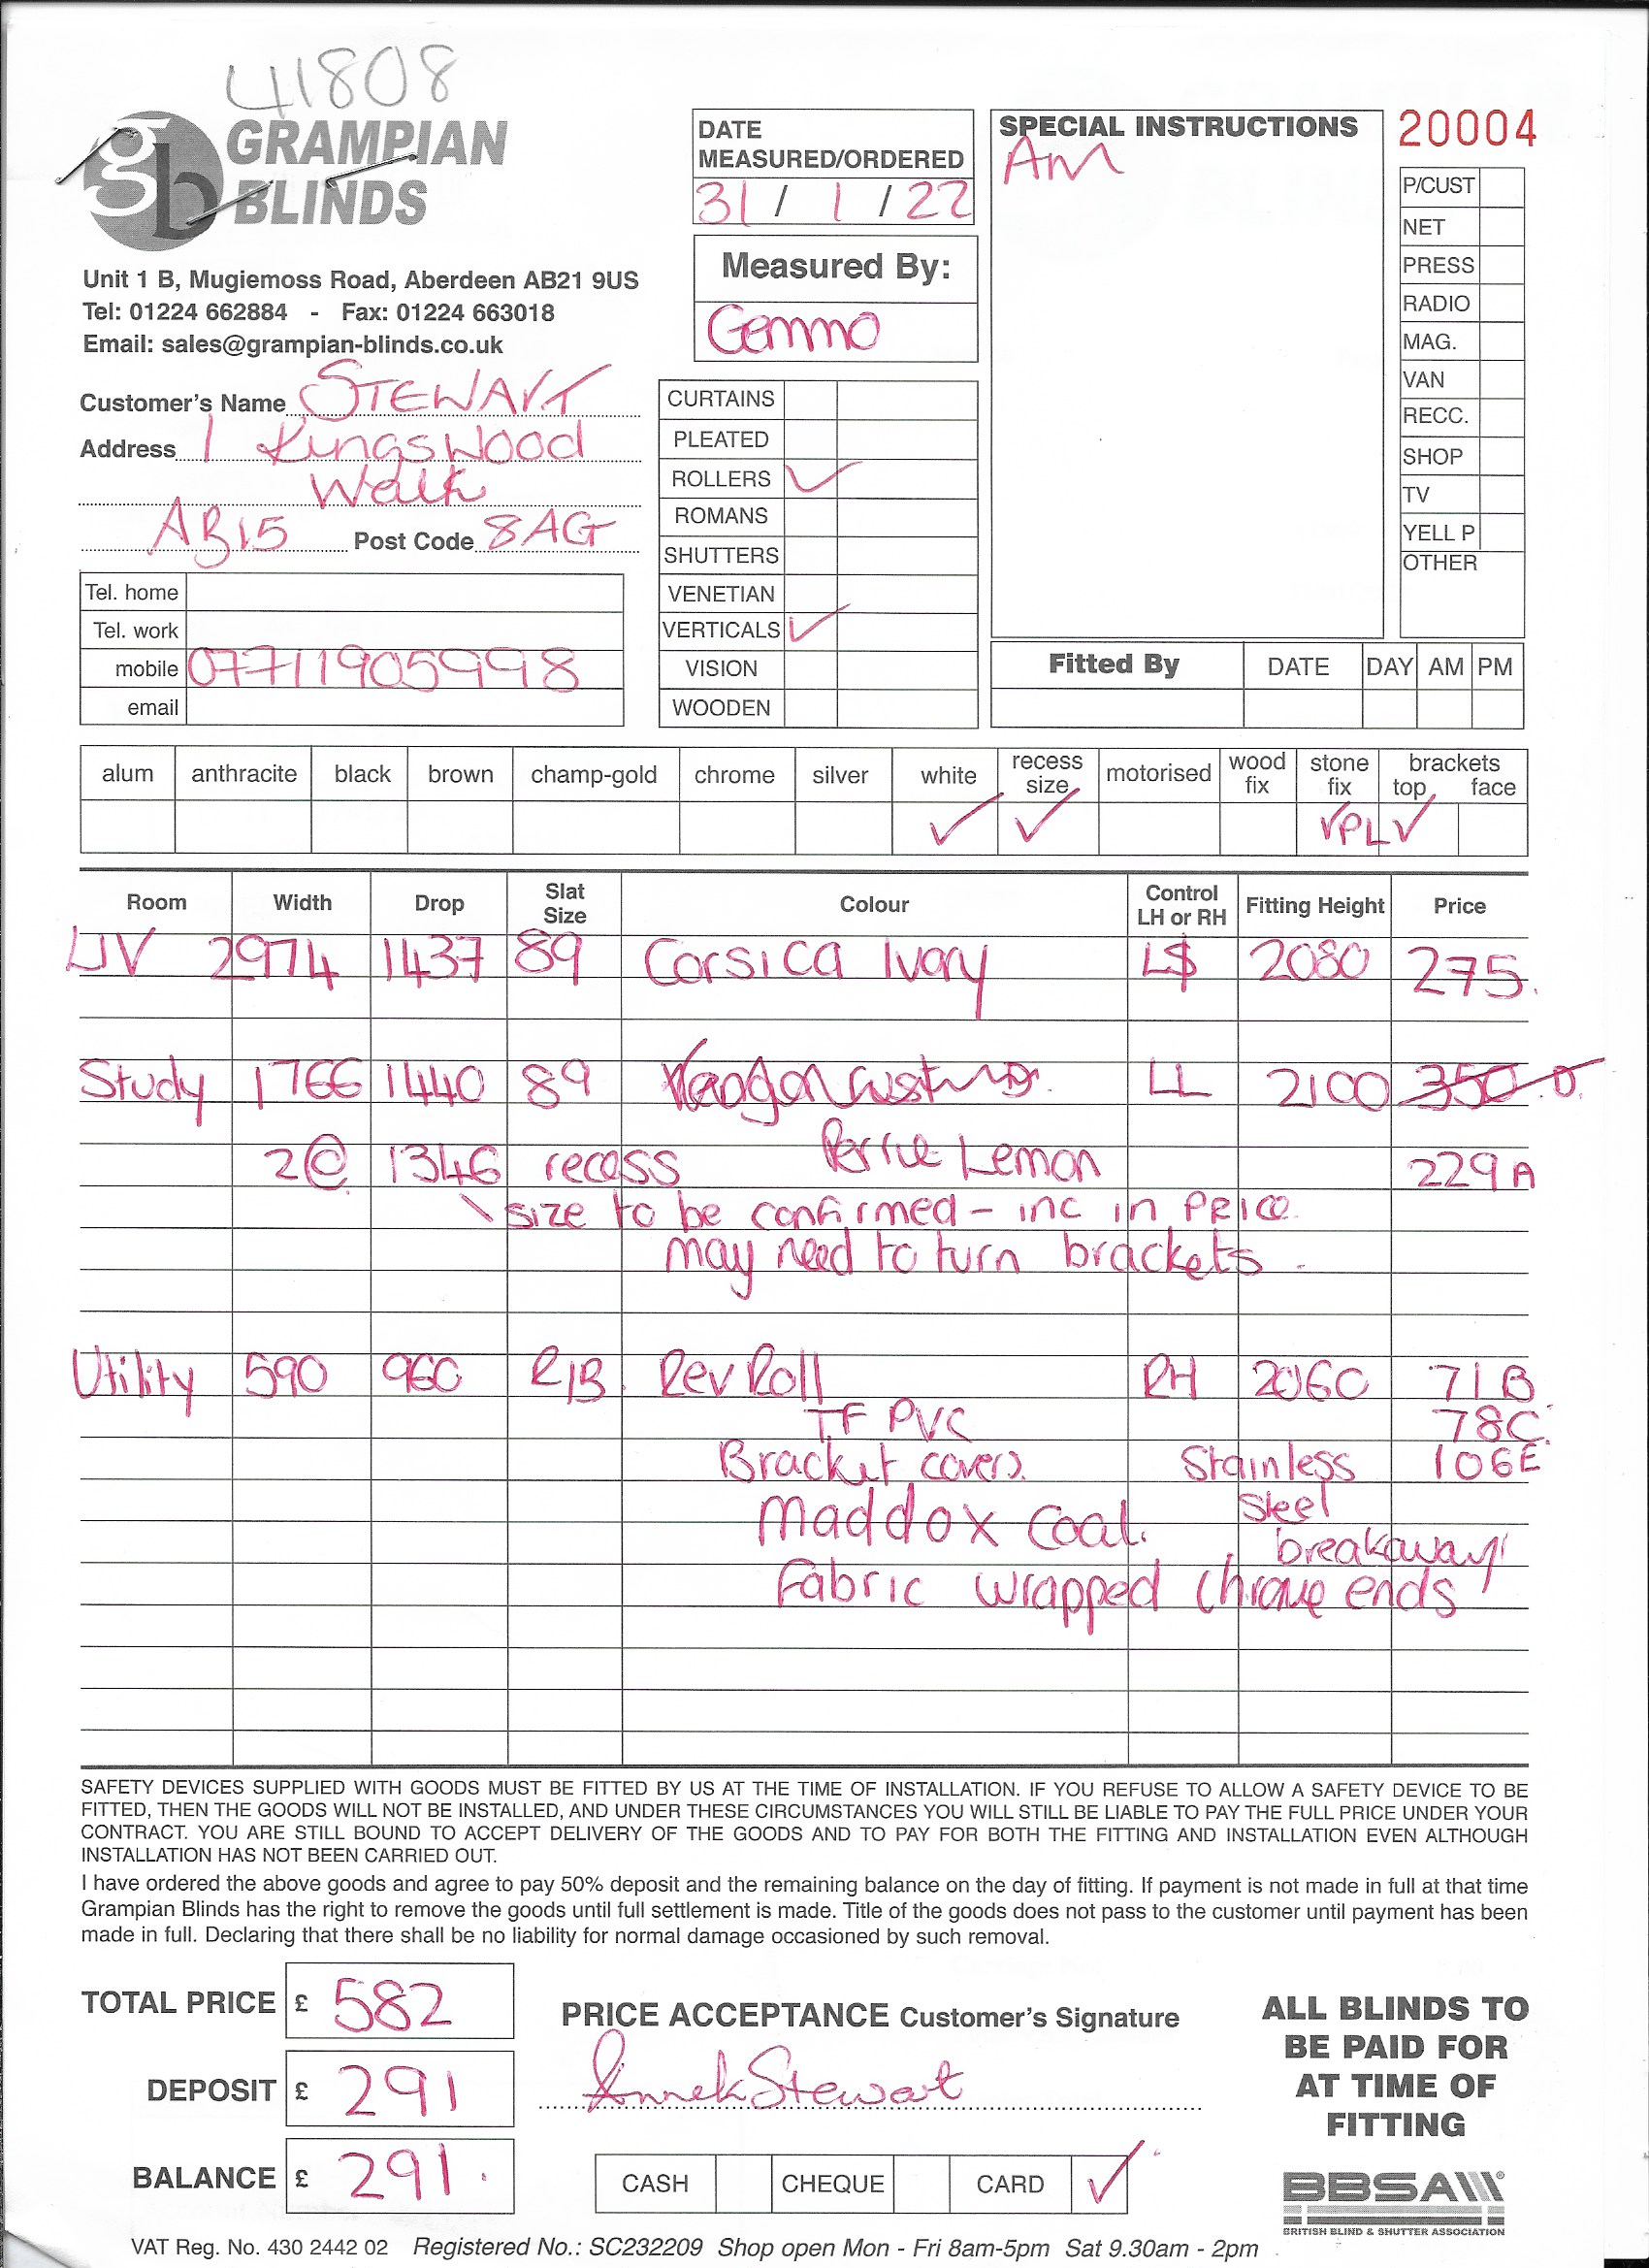 41808
GRAMPIAN
BLINDS
Unit 1 B, Mugiemoss Road, Aberdeen AB21 9US
Tel: 01224 662884 - Fax: 01224 663018
Email: sales@grampian-blinds.co.uk
Customer's Name STEWART
Address 1 Kingswood
Walk
AB15 Post Code 8AG
Tel. home
Tel. work
mobile 07711905998
email
DATE
MEASURED/ORDERED
31 / 1 / 22
Measured By:
Gemma
CURTAINS
PLEATED
ROLLERS ✓
ROMANS
SHUTTERS
VENETIAN
VERTICALS ✓
VISION
WOODEN
SPECIAL INSTRUCTIONS
AM
20004
P/CUST
NET
PRESS
RADIO
MAG.
VAN
RECC.
SHOP
TV
YELL P
OTHER
Fitted By DATE DAY AM PM
alum anthracite black brown champ-gold chrome silver white recess size motorised wood fix stone fix brackets top face
✓ ✓ ✓PL ✓
Room Width Drop Slat Size Colour Control LH or RH Fitting Height Price
LIV 2974 1437 89 Corsica Ivory L$ 2080 275.
Study 1766 1440 89 LL 2100 350.D.
2@ 1346 recess Lemon 229A
size to be confirmed - inc in PRICE.
may need to turn brackets.
Utility 590 960 R/B. Rev Roll RH 2060 71B
TF PVC 78C
Bracket covers. Stainless 106E
Maddox Coal. Steel
breakaway
Fabric wrapped Chrome ends
SAFETY DEVICES SUPPLIED WITH GOODS MUST BE FITTED BY US AT THE TIME OF INSTALLATION. IF YOU REFUSE TO ALLOW A SAFETY DEVICE TO BE
FITTED, THEN THE GOODS WILL NOT BE INSTALLED, AND UNDER THESE CIRCUMSTANCES YOU WILL STILL BE LIABLE TO PAY THE FULL PRICE UNDER YOUR
CONTRACT. YOU ARE STILL BOUND TO ACCEPT DELIVERY OF THE GOODS AND TO PAY FOR BOTH THE FITTING AND INSTALLATION EVEN ALTHOUGH
INSTALLATION HAS NOT BEEN CARRIED OUT.
I have ordered the above goods and agree to pay 50% deposit and the remaining balance on the day of fitting. If payment is not made in full at that time
Grampian Blinds has the right to remove the goods until full settlement is made. Title of the goods does not pass to the customer until payment has been
made in full. Declaring that there shall be no liability for normal damage occasioned by such removal.
TOTAL PRICE £ 582
DEPOSIT £ 291
BALANCE £ 291.
PRICE ACCEPTANCE Customer's Signature
Stewart
CASH CHEQUE CARD ✓
ALL BLINDS TO
BE PAID FOR
AT TIME OF
FITTING
BBSA
BRITISH BLIND & SHUTTER ASSOCIATION
VAT Reg. No. 430 2442 02 Registered No.: SC232209 Shop open Mon - Fri 8am-5pm Sat 9.30am - 2pm